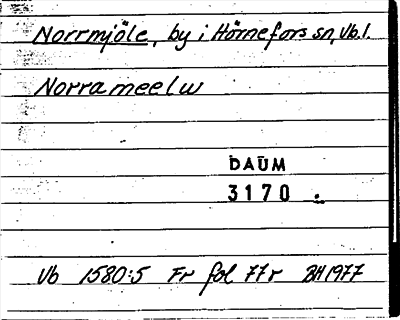 Norrmjöle, by i Hörnefors sn, Vb.l.
Norra meelw
DAUM
3170 .
Vb 1580:5 Fr fol 77r BH 1977